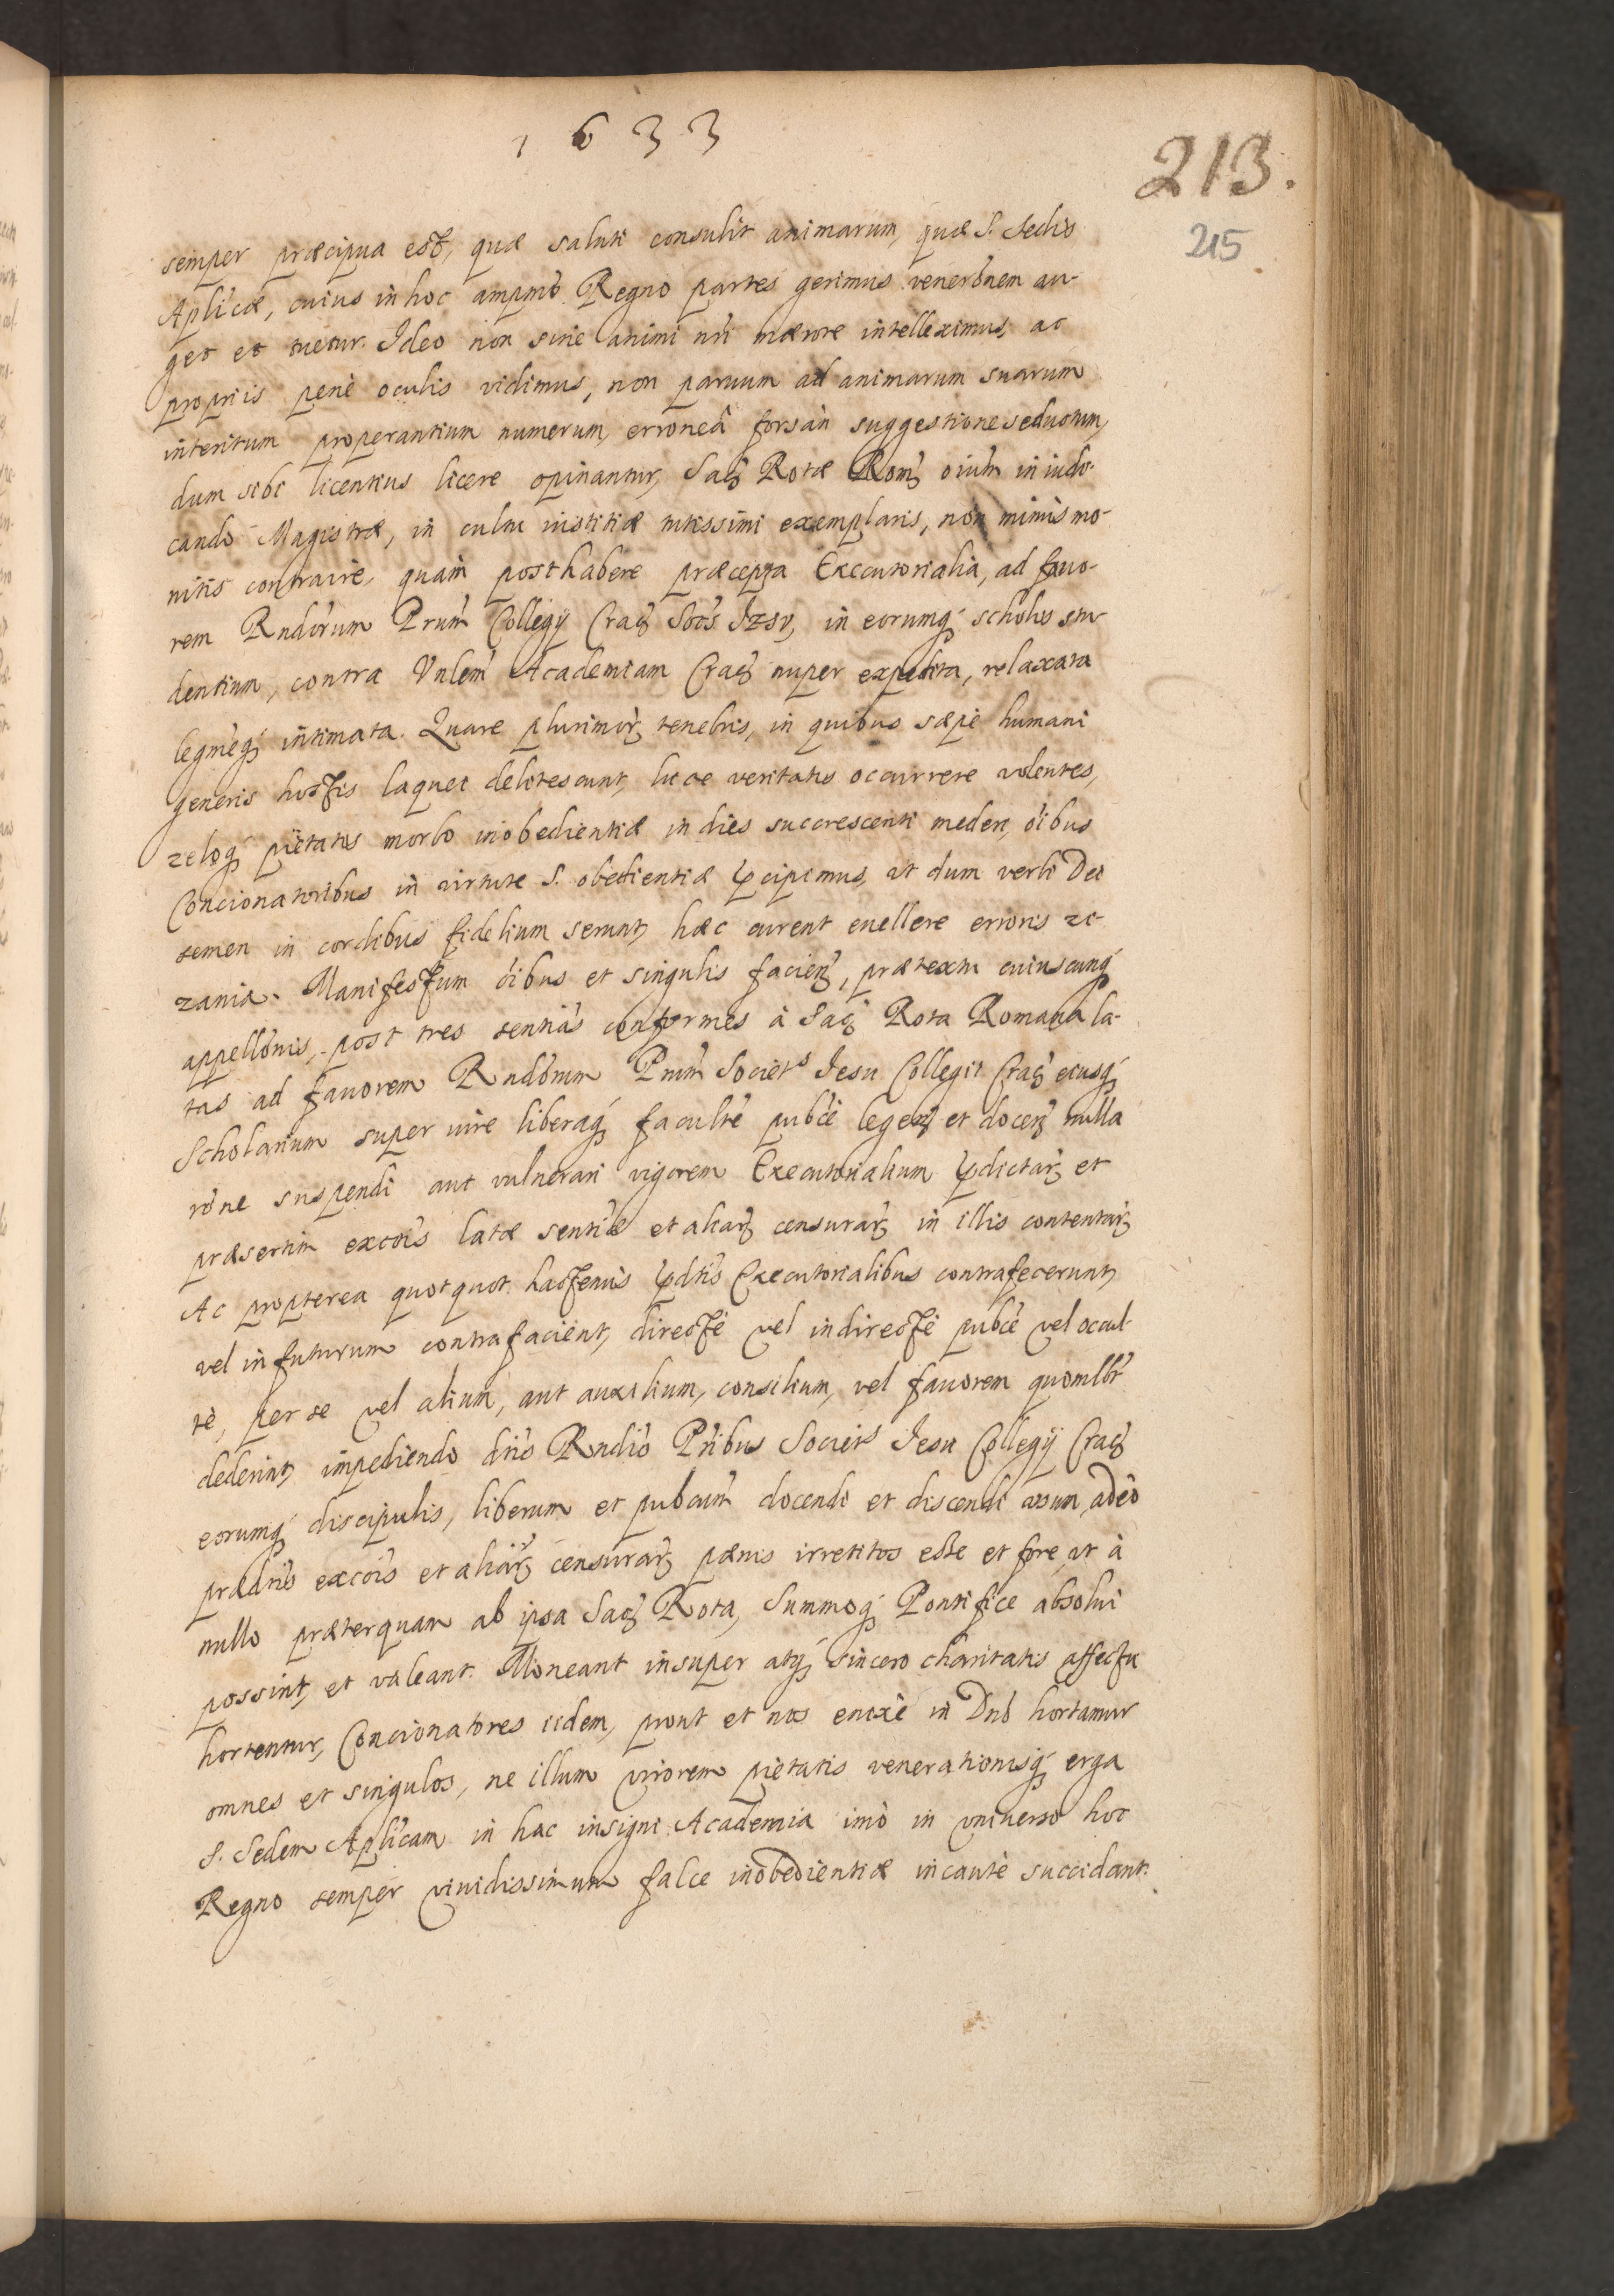 1633
213.
215
semper præcipua est, quæ saluti consulit animarum, quæ S. Sedis
Aplicæ, cuius in hoc ampmo Regno partes gerimus venerõnem au-
get et tuetur. Ideo non sine animi nři mærore intelleximus, ac
proprijs penè oculis vidimus, non paruum ad animarum suarum
interitum properantium numerum, erroneâ forsàn suggestione seductum,
dum sibi licentius licere opinantur, Sac₃ Rotæ Rom₃ oium in iudi-
cando Magistræ, in cultu iustitiæ tutissimi exemplaris, non minùs mo-
nitis contraire, quàm posthabere præcepta Executorialia, ad fauo-
rem Rndorum Prum Collegij Crac₃ Soctis Iesv, in eorumq́₃ scholis stu-
dentium, contra Vnlem Academiam Crac₃ nuper expedita, relaxata
legmeq́₃ intimata. Quare plurimor₃ tenebris, in quibus sæpè humani
generis hostis laquei delitescunt, luce veritatis occurrere volentes,
zeloq́₃ pietatis morbo inobedientiæ in dies succrescenti mederi, oibus
Concionatoribus in virtute S. obedientiæ p̃cipimus, vt dum verbi Dei
semen in cordibus fidelium serunt, hæc curent euellere erroris zi-
zania. Manifestum oibus et singulis facien₃, prætextu cuiuscunq́₃
appellõnis, post tres sentias conformes à Sac₃ Rota Romana la-
tas ad fauorem Rndorum Prum Societis Iesu Collegij Crac₃ eiusq́₃
Scholarium super iure liberaq́₃ faculte pubcè legen₃ et docen₃ nulla
rõne suspendi aut vulnerari vigorem Executorialium p̃dictar₃ et
præsertim excois latæ sentiæ et aliar₃ censurar₃ in illis contentar₃
Ac propterea quotquot hactenùs p̃dtis Executorialibus contrafecerunt,
vel in futurum contrafacient, directè vel indirectè pubcè vel occul-
tè, per se vel alium, aut auxilium, consilium, vel fauorem quomlbt
dederint, impediendo dtis Rndis Pribus Societis Iesu Collegij Crac₃
eorumq́₃ discipulis, liberum et pubcum docendi et discendi vsum, adeò
prædtis excois et aliar₃ censurar₃ pænis irretitos esse et fore, vt à
nullo præterquam ab ipsa Sac₃ Rota, Summoq́₃ Pontifice absolui
possint, et valeant. Moneant insuper atq́₃ sincero charitatis affectu
hortentur, Concionatores iidem, prout et nos enixè in Dno hortamur
omnes et singulos, ne illum virorem pietatis venerationisq́₃ erga
S. Sedem Aplicam in hac insigni Academia imò in vniuerso hoc
Regno semper viuidissimum falce inobedientiæ incautè succidant.